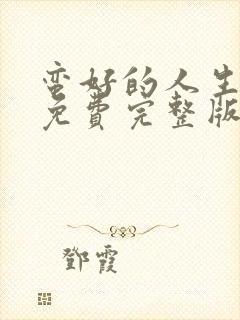 蛮好的人生
免費完整版
鄧霞